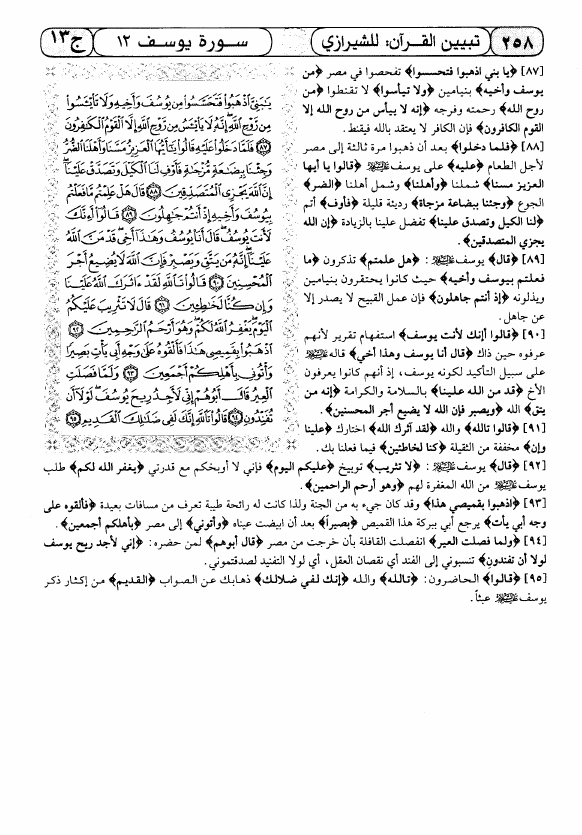 ٢٥٨
تبيين القرآن: للشيرازي
سورة يوسف ١٢
ج١٣
[٨٧] ﴿يا بني اذهبوا فتحسسوا﴾ تفحصوا في مصر ﴿من
يوسف وأخيه﴾ بنيامين ﴿ولا تيأسوا﴾ لا تقنطوا ﴿من
روح الله﴾ رحمته وفرجه ﴿إنه لا ييأس من روح الله إلا
القوم الكافرون﴾ فإن الكافر لا يعتقد بالله فيقنط.
[٨٨] ﴿فلما دخلوا﴾ بعد أن ذهبوا مرة ثالثة إلى مصر
لأجل الطعام ﴿عليه﴾ على يوسف ﴿قالوا يا أيها
العزيز مسنا﴾ شملنا ﴿وأهلنا﴾ وشمل أهلنا ﴿الضر﴾
الجوع ﴿وجئنا ببضاعة مزجاة﴾ رديئة قليلة ﴿فأوف﴾ أتم
﴿لنا الكيل وتصدق علينا﴾ تفضل علينا بالزيادة ﴿إن الله
يجزي المتصدقين﴾.
[٨٩] ﴿قال﴾ يوسف : ﴿هل علمتم﴾ تذكرون ﴿ما
فعلتم بيوسف وأخيه﴾ حيث كانوا يحتقرون بنيامين
ويذلونه ﴿إذ أنتم جاهلون﴾ فإن عمل القبيح لا يصدر إلا
عن جاهل.
[٩٠] ﴿قالوا أإنك لأنت يوسف﴾ استفهام تقرير لأنهم
عرفوه حين ذاك ﴿قال أنا يوسف وهذا أخي﴾ قاله
على سبيل التأكيد لكونه يوسف، إذ أنهم كانوا يعرفون
الأخ ﴿قد من الله علينا﴾ بالسلامة والكرامة ﴿إنه من
يتق﴾ الله ﴿ويصبر فإن الله لا يضيع أجر المحسنين﴾.
[٩١] ﴿قالوا تالله﴾ والله ﴿لقد آثرك الله﴾ اختارك ﴿علينا
وإن﴾ مخففة من الثقيلة ﴿كنا لخاطئين﴾ فيما فعلنا بك.
[٩٢] ﴿قال﴾ يوسف : ﴿لا تثريب﴾ توبيخ ﴿عليكم اليوم﴾ فإني لا أوبخكم مع قدرتي ﴿يغفر الله لكم﴾ طلب
يوسف من الله المغفرة لهم ﴿وهو أرحم الراحمين﴾.
[٩٣] ﴿اذهبوا بقميصي هذا﴾ وقد كان جيء به من الجنة ولذا كانت له رائحة طيبة تعرف من مسافات بعيدة ﴿فألقوه على
وجه أبي يأت﴾ يرجع أبي ببركة هذا القميص ﴿بصيراً﴾ بعد أن ابيضت عيناه ﴿وأتوني﴾ إلى مصر ﴿بأهلكم أجمعين﴾.
[٩٤] ﴿ولما فصلت العير﴾ انفصلت القافلة بأن خرجت من مصر ﴿قال أبوهم﴾ لمن حضره: ﴿إني لأجد ريح يوسف
لولا أن تفندون﴾ تنسبوني إلى الفند أي نقصان العقل، أي لولا التفنيد لصدقتموني.
[٩٥] ﴿قالوا﴾ الحاضرون: ﴿تالله﴾ والله ﴿إنك لفي ضلالك﴾ ذهابك عن الصواب ﴿القديم﴾ من إكثار ذكر
يوسف عبثاً.
يَبَنِيَّ اذْهَبُوا فَتَحَسَّسُوا مِن يُوسُفَ وَأَخِيهِ وَلَا تَايْـَٔسُوا
مِن رَّوْحِ اللَّهِ إِنَّهُ لَا يَايْـَٔسُ مِن رَّوْحِ اللَّهِ إِلَّا الْقَوْمُ الْكَٰفِرُونَ
٨٧ فَلَمَّا دَخَلُوا عَلَيْهِ قَالُوا يَٰٓأَيُّهَا الْعَزِيزُ مَسَّنَا وَأَهْلَنَا الضُّرُّ
وَجِئْنَا بِبِضَٰعَةٍ مُّزْجَىٰةٍ فَأَوْفِ لَنَا الْكَيْلَ وَتَصَدَّقْ عَلَيْنَآ
إِنَّ اللَّهَ يَجْزِي الْمُتَصَدِّقِينَ ٨٨ قَالَ هَلْ عَلِمْتُم مَّا فَعَلْتُم
بِيُوسُفَ وَأَخِيهِ إِذْ أَنتُمْ جَٰهِلُونَ ٨٩ قَالُوٓا أَءِنَّكَ
لَأَنتَ يُوسُفُ قَالَ أَنَا يُوسُفُ وَهَٰذَآ أَخِي قَدْ مَنَّ اللَّهُ
عَلَيْنَآ إِنَّهُ مَن يَتَّقِ وَيَصْبِرْ فَإِنَّ اللَّهَ لَا يُضِيعُ أَجْرَ
الْمُحْسِنِينَ ٩٠ قَالُوا تَاللَّهِ لَقَدْ ءَاثَرَكَ اللَّهُ عَلَيْنَا
وَإِن كُنَّا لَخَٰطِـِٔينَ ٩١ قَالَ لَا تَثْرِيبَ عَلَيْكُمُ
الْيَوْمَ يَغْفِرُ اللَّهُ لَكُمْ وَهُوَ أَرْحَمُ الرَّٰحِمِينَ ٩٢
اذْهَبُوا بِقَمِيصِي هَٰذَا فَأَلْقُوهُ عَلَىٰ وَجْهِ أَبِي يَأْتِ بَصِيرًا
وَأْتُونِي بِأَهْلِكُمْ أَجْمَعِينَ ٩٣ وَلَمَّا فَصَلَتِ
الْعِيرُ قَالَ أَبُوهُمْ إِنِّي لَأَجِدُ رِيحَ يُوسُفَ لَوْلَآ أَن
تُفَنِّدُونِ ٩٤ قَالُوا تَاللَّهِ إِنَّكَ لَفِي ضَلَٰلِكَ الْقَدِيمِ ٩٥